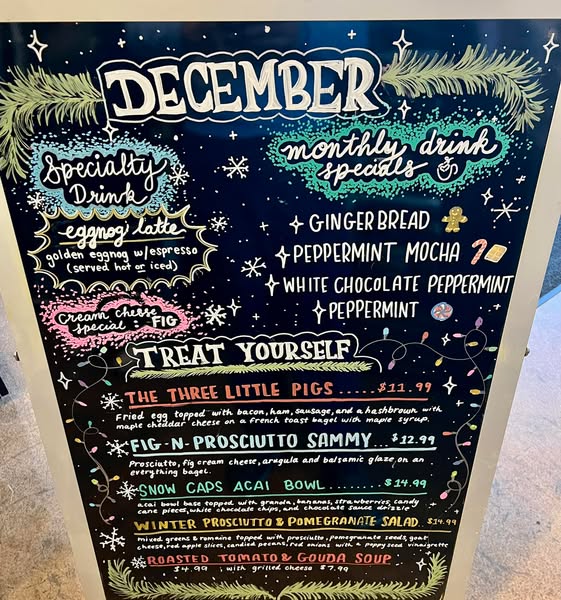 DECEMBER
Specialty
Drink
eggnog latte
golden eggnog w/espresso
(served hot or iced)
Cream cheese
special : FIG
monthly drink
specials
GINGERBREAD
PEPPERMINT MOCHA
WHITE CHOCOLATE PEPPERMINT
PEPPERMINT
TREAT YOURSELF
THE THREE LITTLE PIGS.....$11.99
Fried egg topped with bacon, ham, sausage, and a hashbrown with
maple cheddar cheese on a French toast bagel with maple syrup.
FIG-N-PROSCIUTTO SAMMY...$12.99
Prosciutto, fig cream cheese, arugula and balsamic glaze on an
everything bagel.
SNOW CAPS ACAI BOWL........$14.99
acai bowl base topped with granola, bananas, strawberries, candy
cane pieces, white chocolate chips, and chocolate sauce drizzle
WINTER PROSCIUTTO & POMEGRANATE SALAD..$14.99
mixed greens & romaine topped with prosciutto, pomegranate seeds, goat
cheese, red apple slices, candied pecans, red onions with a poppyseed vinaigrette
ROASTED TOMATO & GOUDA SOUP
$4.99 ; with grilled cheese $7.99